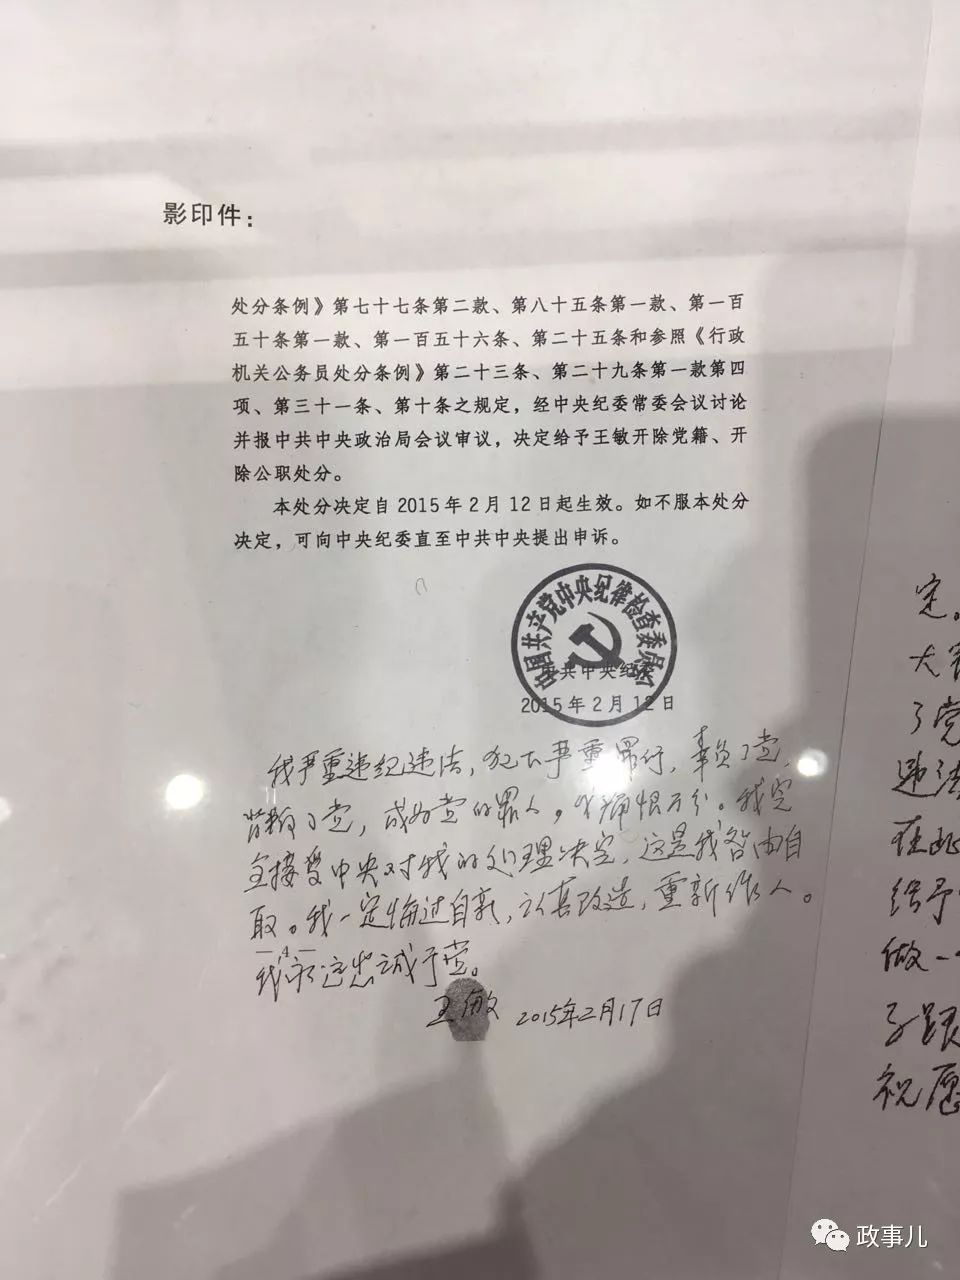 影印件：
处分条例》第七十七条第二款、第八十五条第一款、第一百
五十条第一款、第一百五十六条、第二十五条和参照《行政
机关公务员处分条例》第二十三条、第二十九条第一款第四
项、第三十一条、第十条之规定，经中央纪委常委会议讨论
并报中共中央政治局会议审议，决定给予王敏开除党籍、开
除公职处分。
本处分决定自2015年2月12日起生效。如不服本处分
决定，可向中央纪委直至中共中央提出申诉。
中国共产党中央纪律检查委员会
中共中央纪委
2015年2月12日
我严重违纪违法，犯下严重罪行，辜负了党，
背叛了党，成为党的罪人。痛恨万分。我完
全接受中央对我的处理决定，这是我咎由自
取。我一定悔过自新，认真改造，重新作人。
—4—
我永远忠诚于党。
王敏 2015年2月17日
定。
大
了党
违法
在此
给予
做一
子
祝愿
政事儿